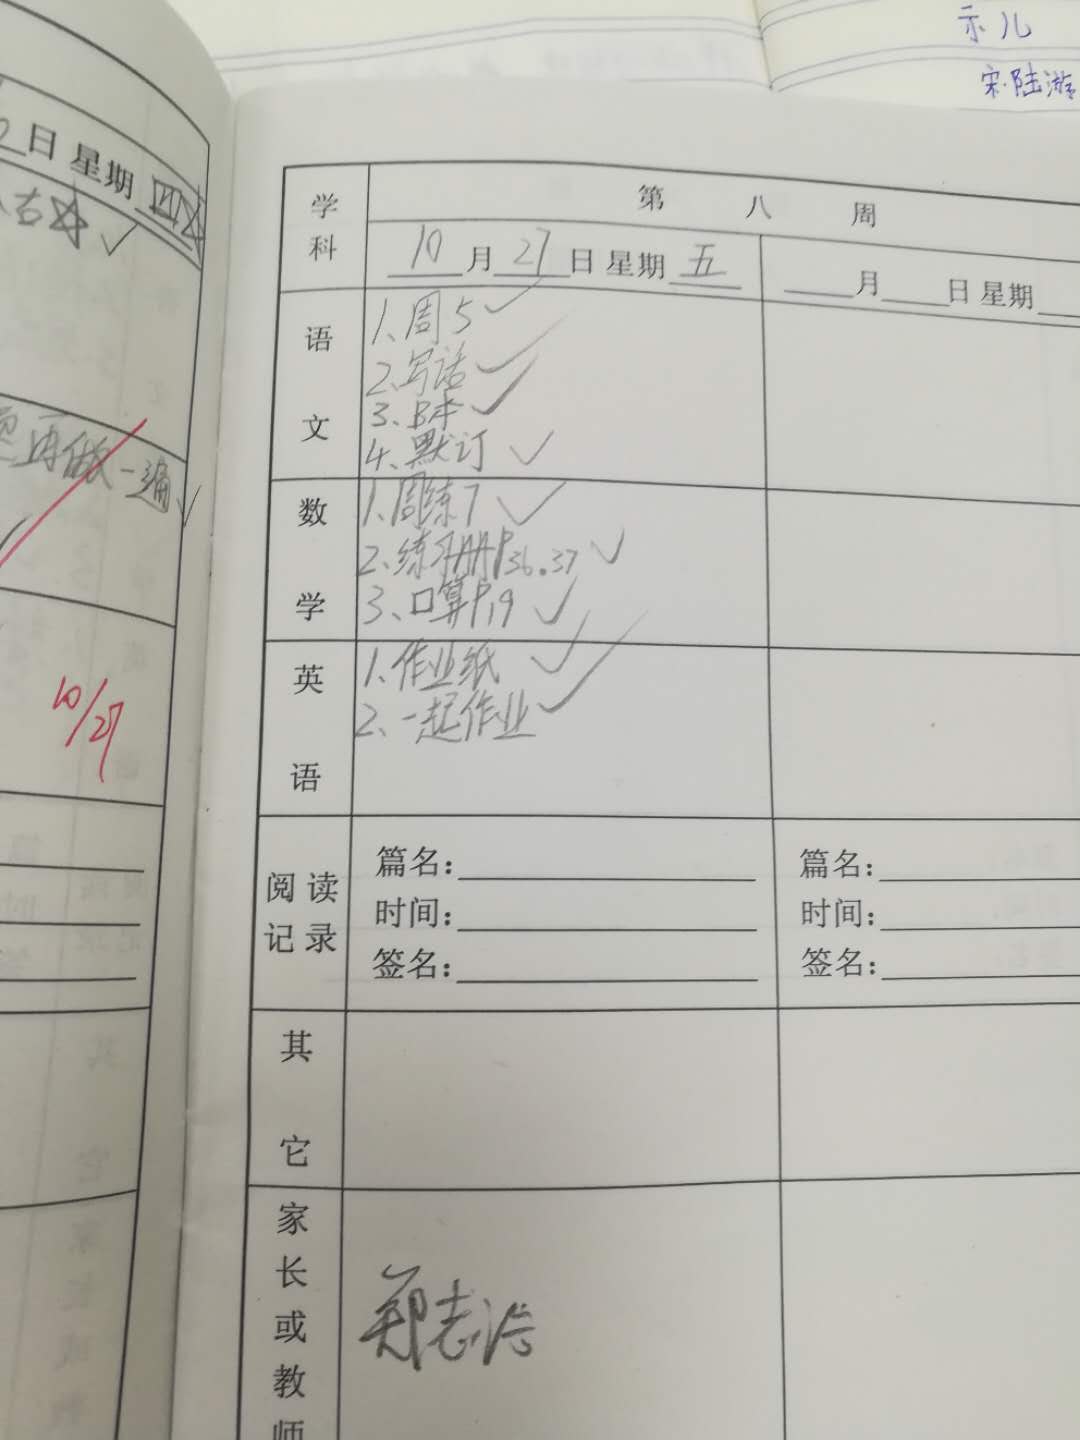 示儿
宋·陆游
日 星期 四
古
再做一遍
10/27
学科
第 八 周
10月27日 星期五
月 日 星期
语文
1、周5
2、写话
3、B本
4、默订
数学
1、周练7
2、练习册P36.37
3、口算P19
英语
1、作业纸
2、一起作业
阅读记录
篇名：
时间：
签名：
篇名：
时间：
签名：
其它
家长或教师
郑志浩